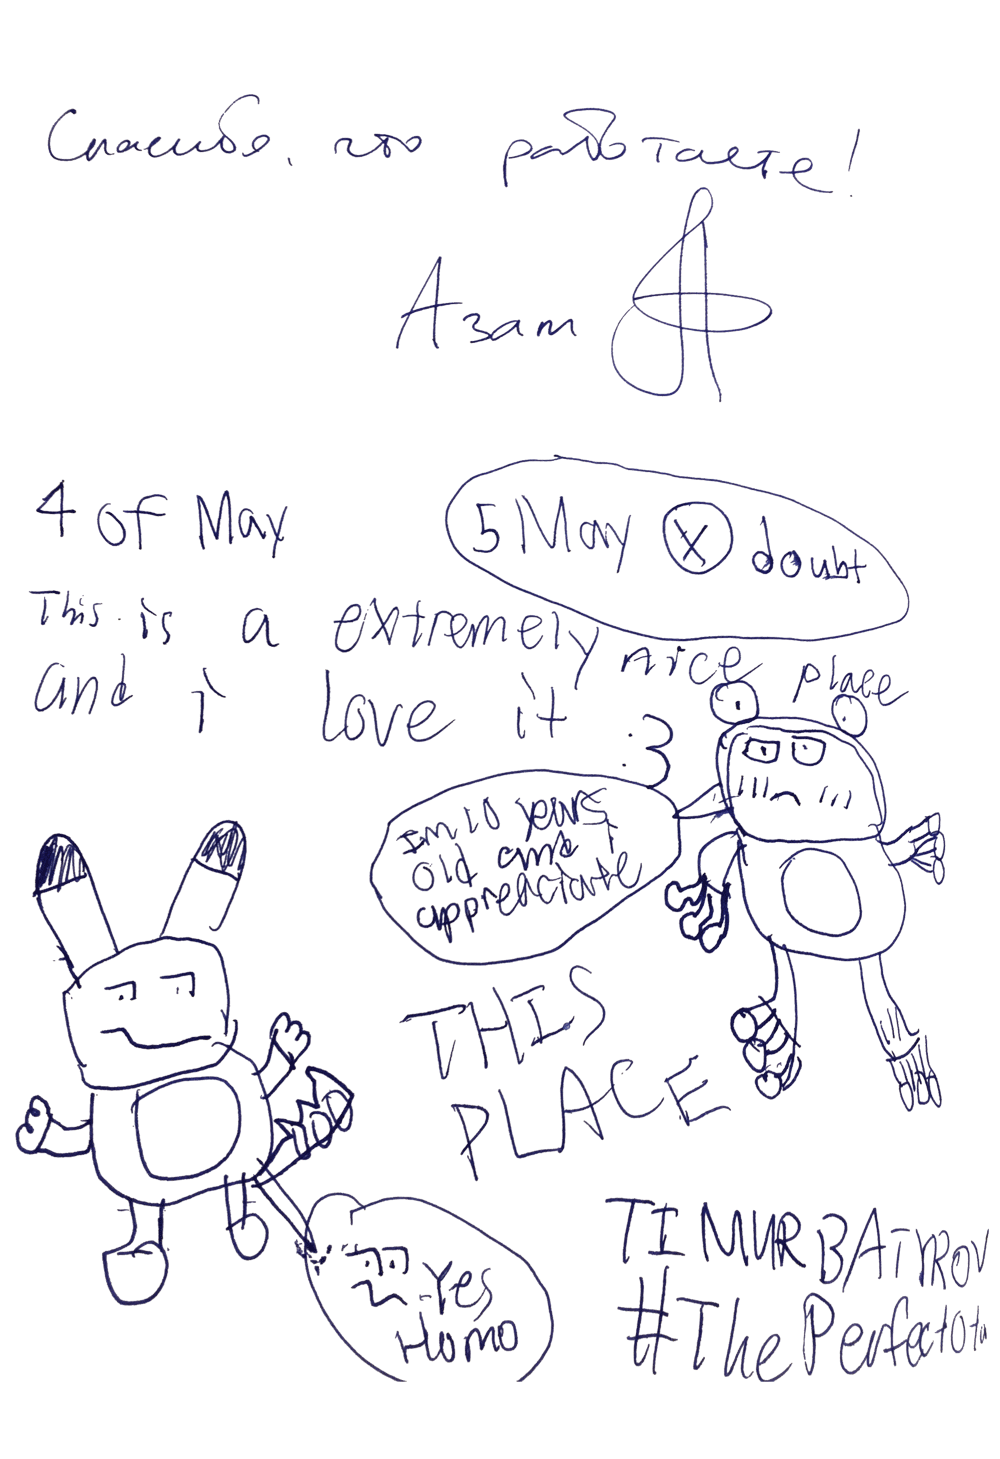 Спасибо, что работаете!
Азат
4 of May
5 May X doubt
This is a extremely nice place
and i love it :3
Im 10 years
old and i
appreaciate
THIS
PLACE
-Yes
Homo
TIMUR BATYROV
#ThePerfectOta